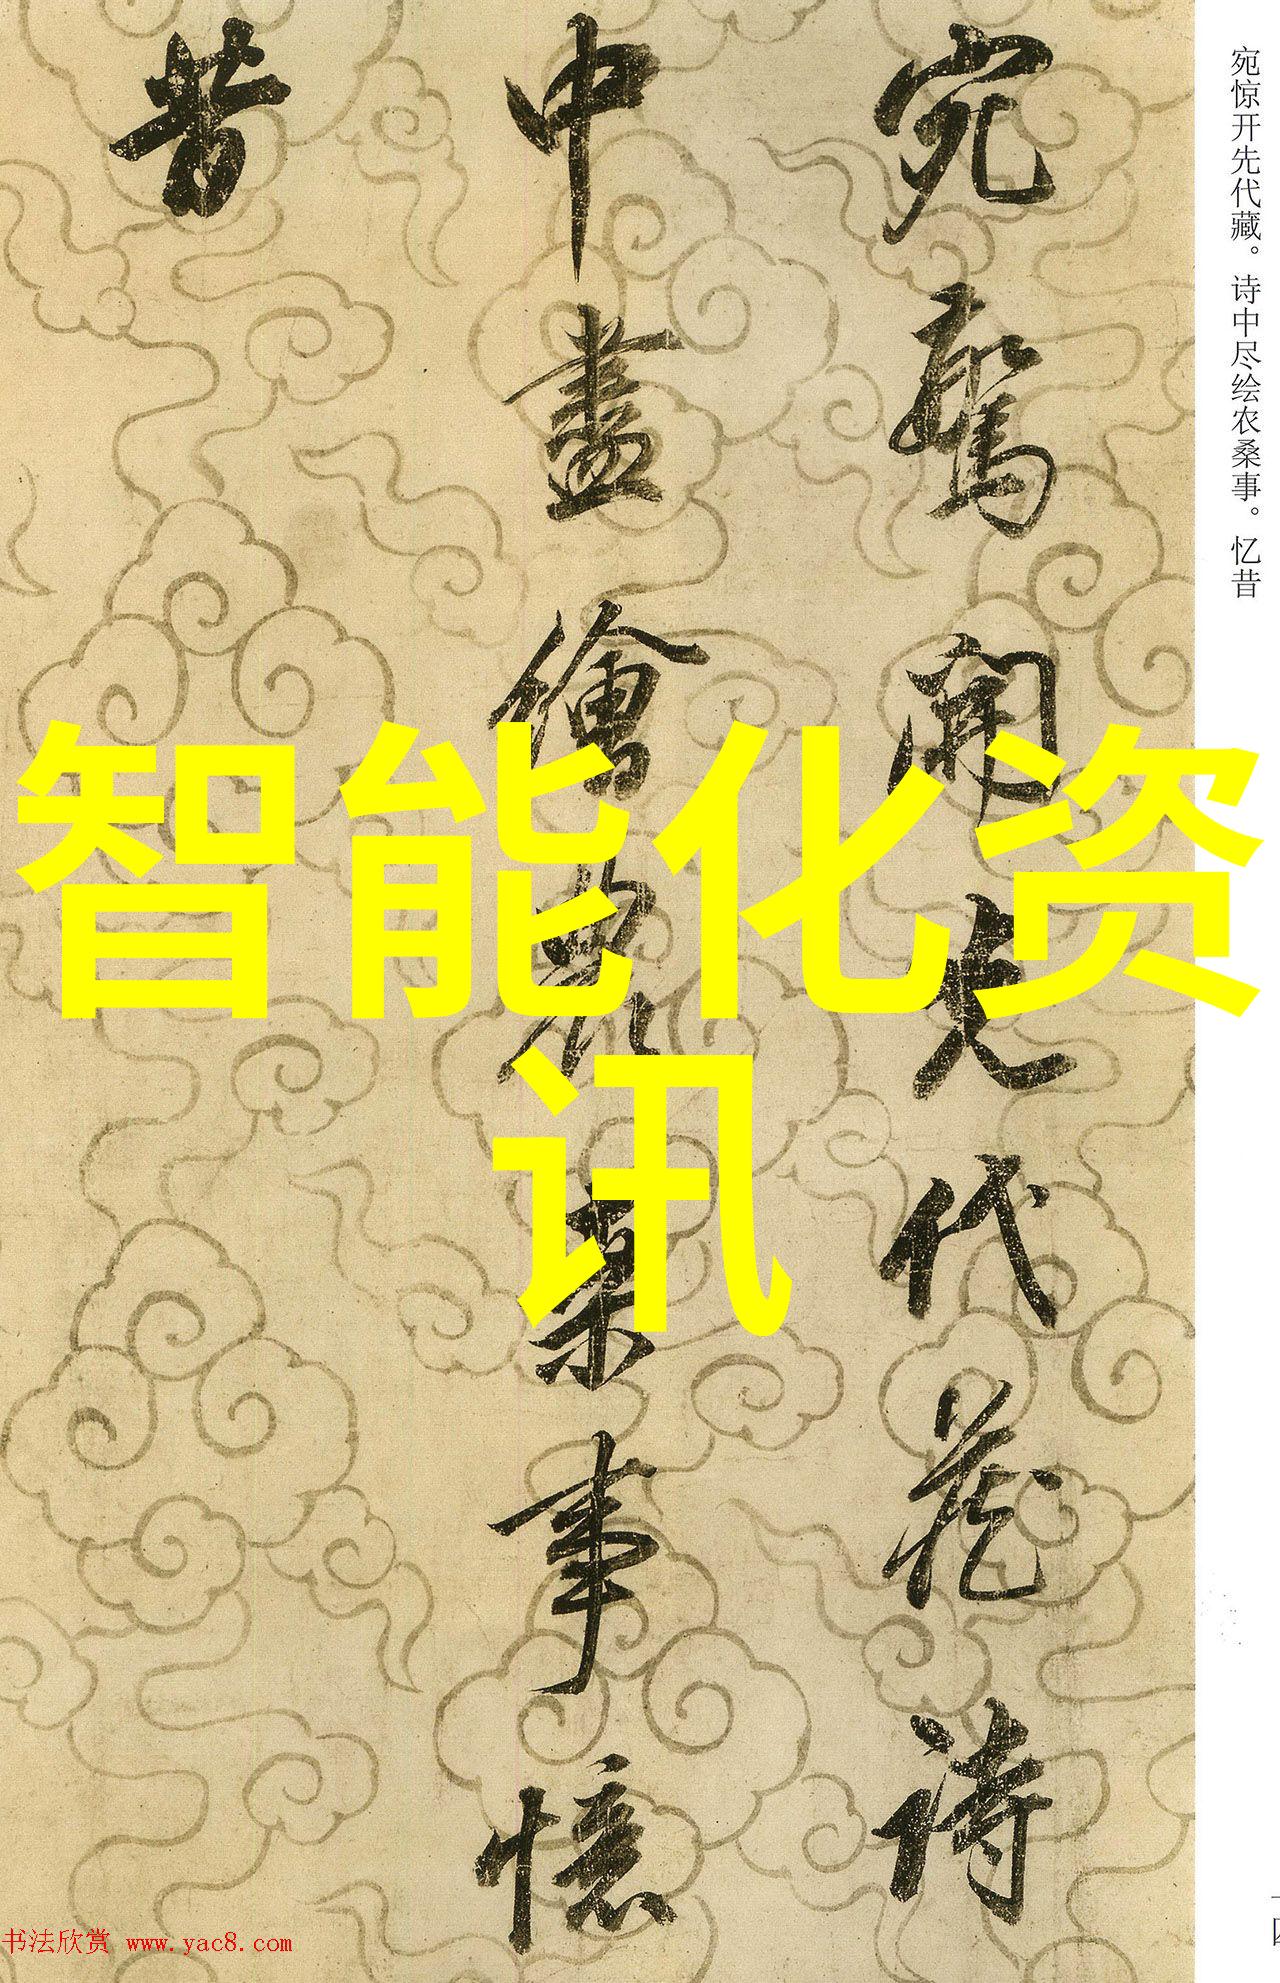 宛驚開先代藏詩
中盡繪農桑事憶
昔
宛惊开先代藏。诗中尽绘农桑事。忆昔
智能化资
讯
书法欣赏 www.yac8.com